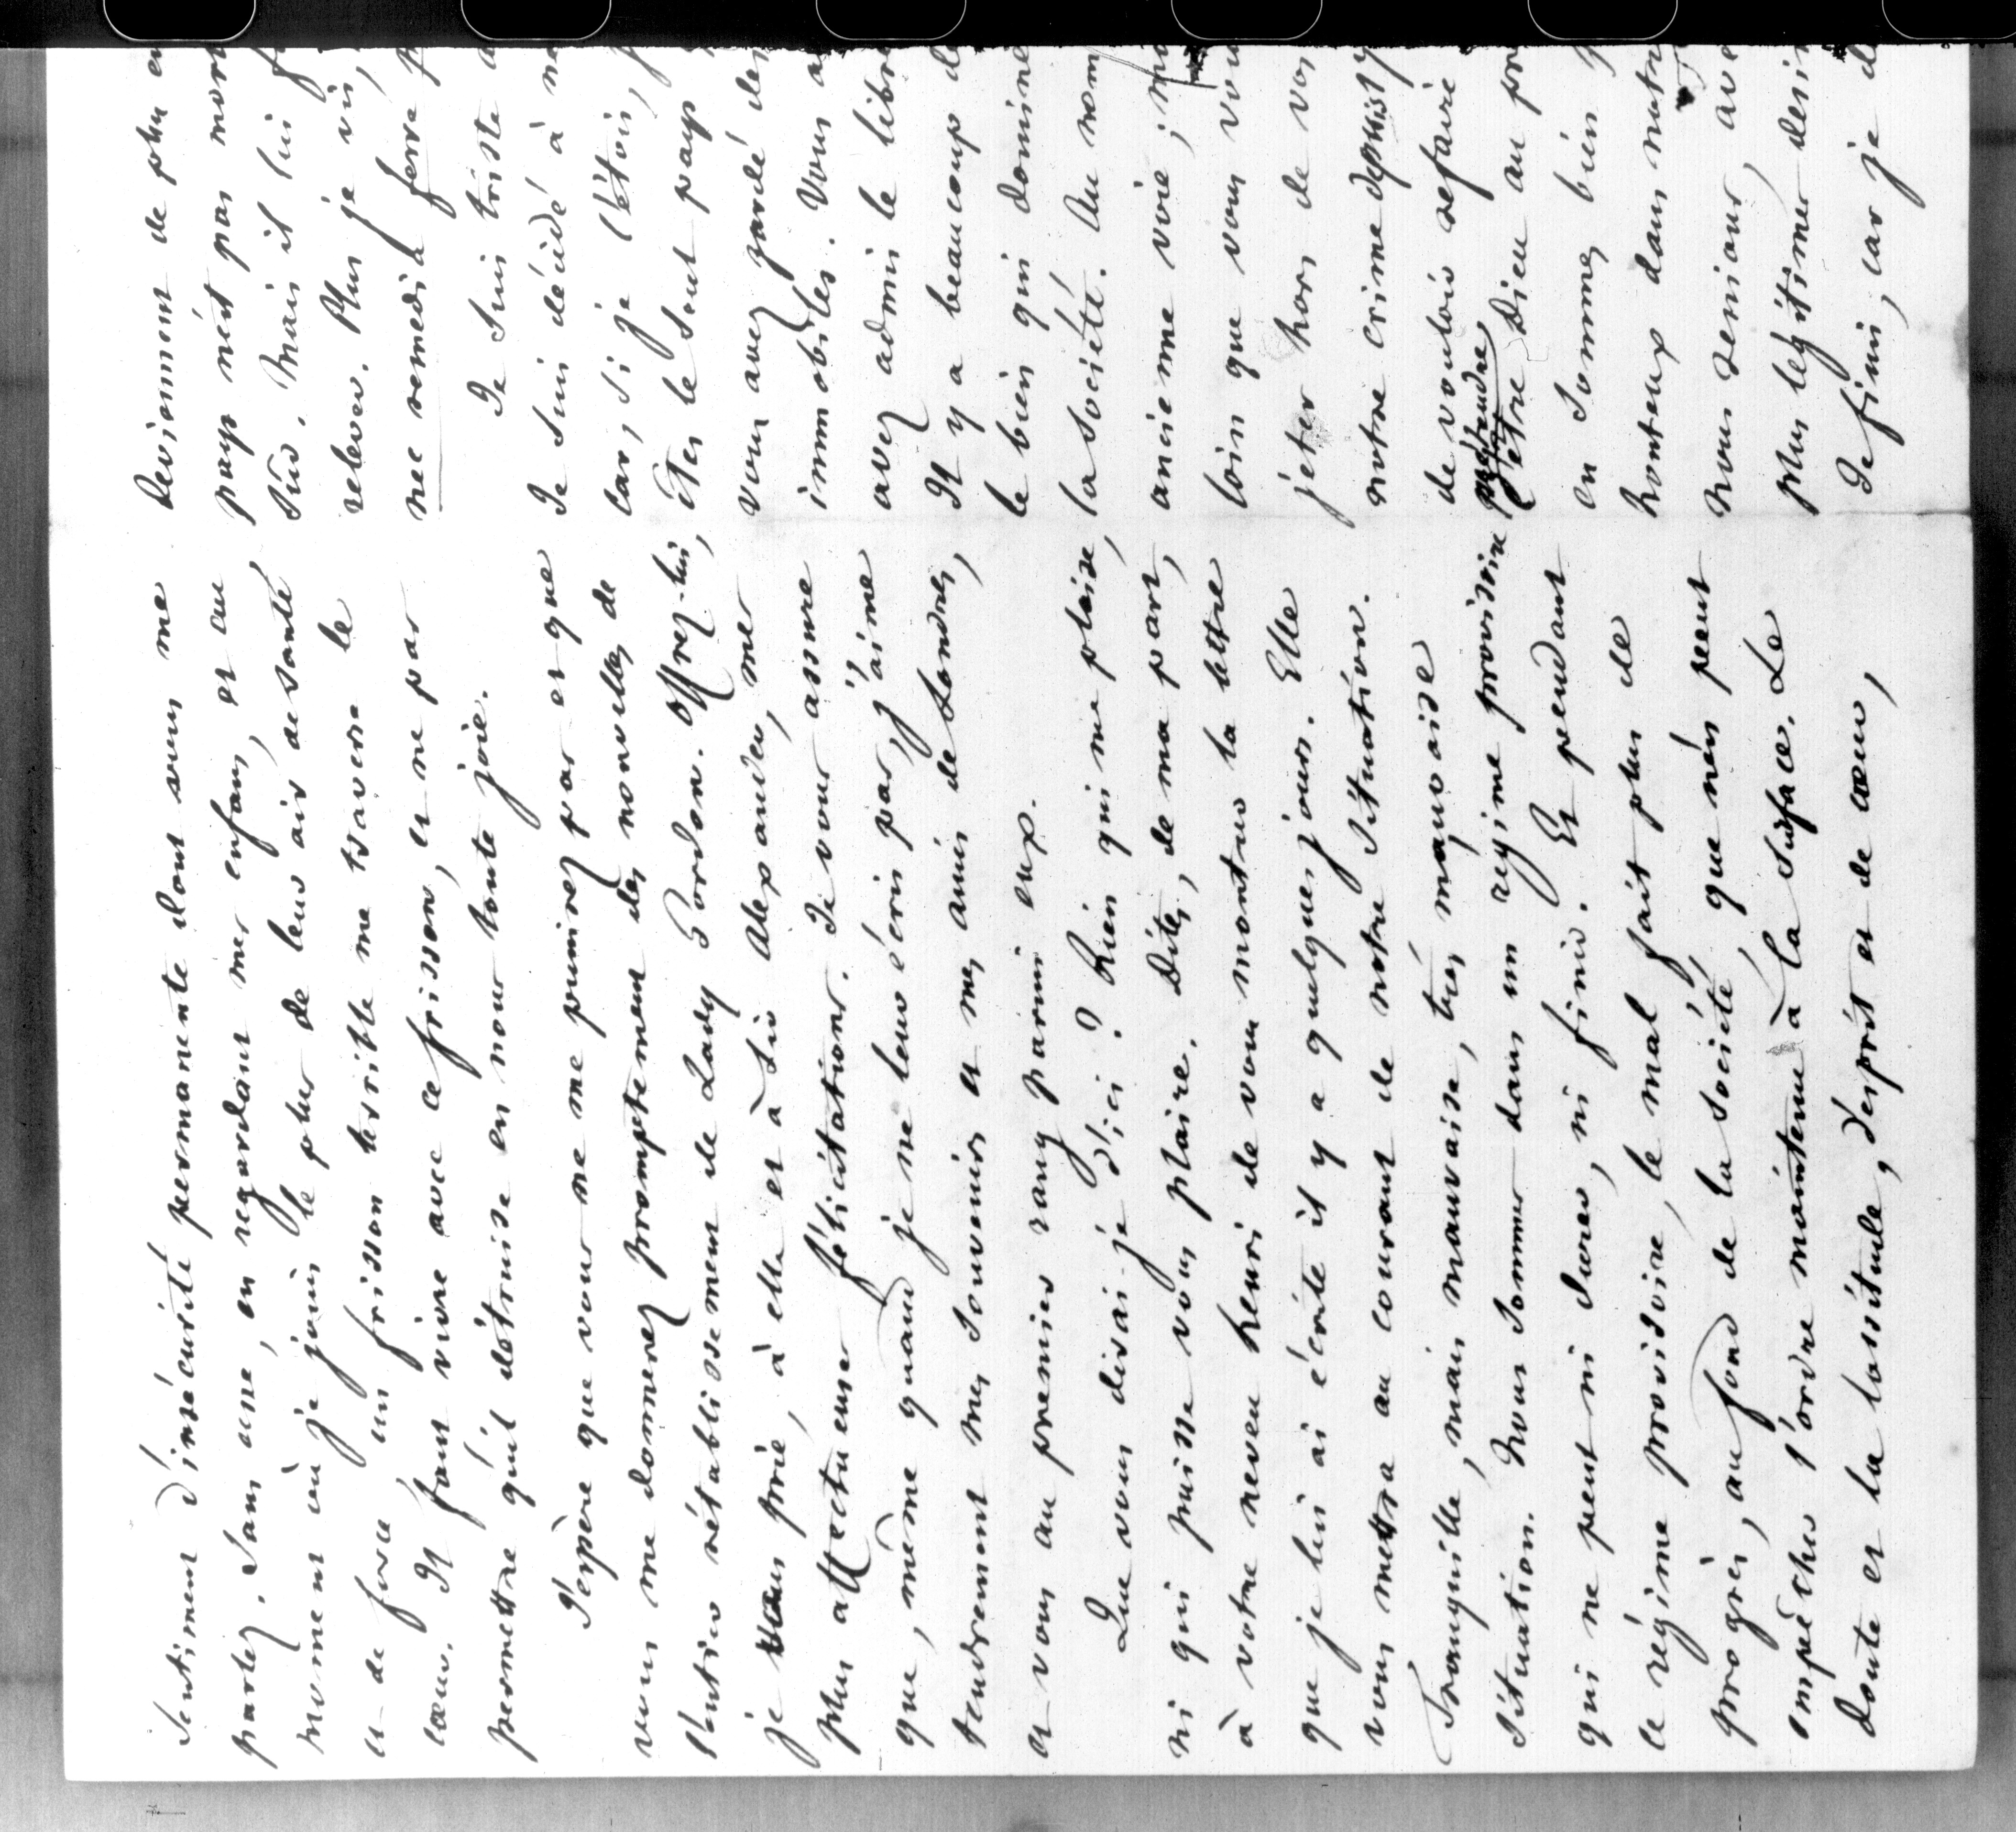 sentiment d'insécurité permanente dont vous me
parlez. Sans cesse, en regardant mes enfans, et au
moment où je jouis le plus de leur air de santé
et de force, un frisson terrible me traverse le
cœur. Il faut vivre avec ce frisson, et ne pas
permettre qu'il détruise en nous toute joie.
J'espère que vous ne me punirez pas et que
vous me donnerez promptement des nouvelles de
l'entier rétablissement de Lady Gordon. Offrez-lui,
je vous prie, à elle et à Sir Alexander, mes
plus affectueuses félicitations. Je vous assure
que, même quand je ne leur écris pas, j'aime
tendrement mes souvenirs et mes amis de Londres,
et vous au premier rang parmi eux.
Que vous dirai-je d'ici ? Rien qui me plaise,
ni qui puisse vous plaire. Dites, de ma part,
à votre neveu Henri de vous montrer la lettre
que je lui ai écrite il y a quelques jours. Elle
vous mettra au courant de notre situation.
Tranquille, mais mauvaise, très mauvaise
situation. Nous sommes dans un régime provisoire
qui ne peut ni durer, ni finir. Et pendant
ce régime provisoire, le mal fait plus de
progrès, au fond de la société, que n'en peut
empêcher l'ordre maintenu à la surface. Le
doute et la lassitude, d'esprit et de cœur,
deviennent de plus en
pays n'est pas mort
sûr. Mais il lui f
relever. Plus je vis,
nec remedia ferre p
Je suis triste a
Je suis décidé à ne
car, si je l'étois, p
êtes le sont pays
vous avez parlé des
immobiles. Vous a
avez admis le libre
Il y a beaucoup de
le bien qui domine
la société. Au nom
ancienne voie ; ma
loin que vous vou
jeter hors de vos
notre crime depuis 17
de vouloir refaire
prétendre
être Dieu au pre
en sommes bien
honteux dans notre
nous renions, ave
plus légitimes desir
Je finis, car je d